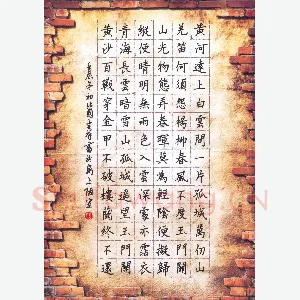 黃河遠上白雲間一片孤城萬仞山
羌笛何須怨楊柳春風不度玉門關
山光物態弄春暉莫為輕陰便擬歸
縱使晴明無雨色入雲深處亦霑衣
青海長雲暗雪山孤城遙望玉門關
黃沙百戰穿金甲不破樓蘭終不還